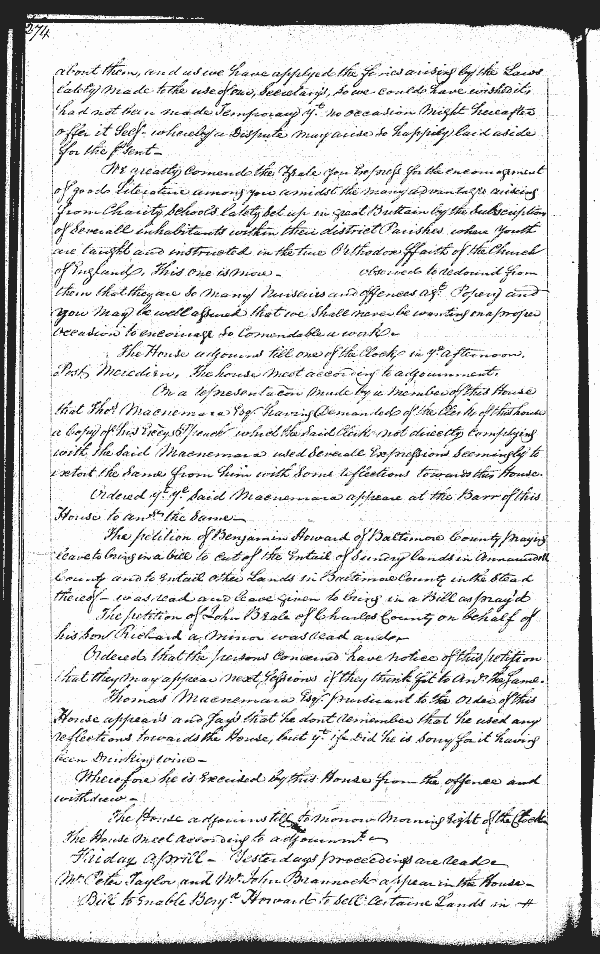 274
about them, and as we have applyed the fines arising by the Laws
lately made to the use of our Secretarys, so we could have wished it
had not been made Temporary yt. no occasion Might hereafter
offer it Self whereby a Dispute may arise so happily laid aside
for the psent-
We greatly comend the Zeale you Express for the encouragement
of good Literature among you amidst the many advantages ariseing
from Charity Schools lately set up in great Brittain by the Subscription
of Severall inhabitants within their district Parishes where youth
are taught and instructed in the true Orthodox ffaith of the Church
of England, This one is more - observed to redound from
them that they are so many Nurseries and offences agt. Popery and
you may be well assured that we shall never be wanting on a proper
occasion to encourage So Comendable a work.
The House adjourns till one of the Clock in ye afternoon.
Post Meredien, The house meet according to adjournment.
On a representacon made by a Member of this House
that Thos. Macnemara Esqr. having Demanded of the Clerk of this house
a Copy of his Excys Speech which the Said Clerk not directly complying
with the Said Macnemara used Severall Expressions Seemingly to
extort the Same from him with Some reflections towards this House.
Ordered yt. ye. Said Macnemara appeare at the Barr of this
House to answr. the Same -
The petition of Benjamin Howard of Baltimore County praying
leave to bring in a bill to cut of the Entail of Sundry lands in Annarundell
County and to Entail other Lands in Baltimore County in the Stead
thereof - was read and leave given to bring in a Bill as pray'd
The petition of John Beale of Charles County on behalf of
his Son Richard a Minor was read and or
Ordered that the persons Concerned have notice of this petition
that they may appear next Sessions if they think fit to Ansr. the Same.
Thomas Macnemara Esqr. pursuant to the Order of this
House appears and Says that he dont remember that he used any
reflections towards the House, but yt. if he Did he is Sorry for it having
been Drinking wine -
Wherefore he is Excused by this House from the offence and
withdrew -
The House adjourns till to morrow Morning Eight of the Clock
The House meet according to adjournmt.
Friday Aprill - Yesterdays proceedings are read
Mr. Peter Taylor and Mr. John Brannock appear in the House -
Bill to Enable Benja. Howard to Sell Certaine Lands in